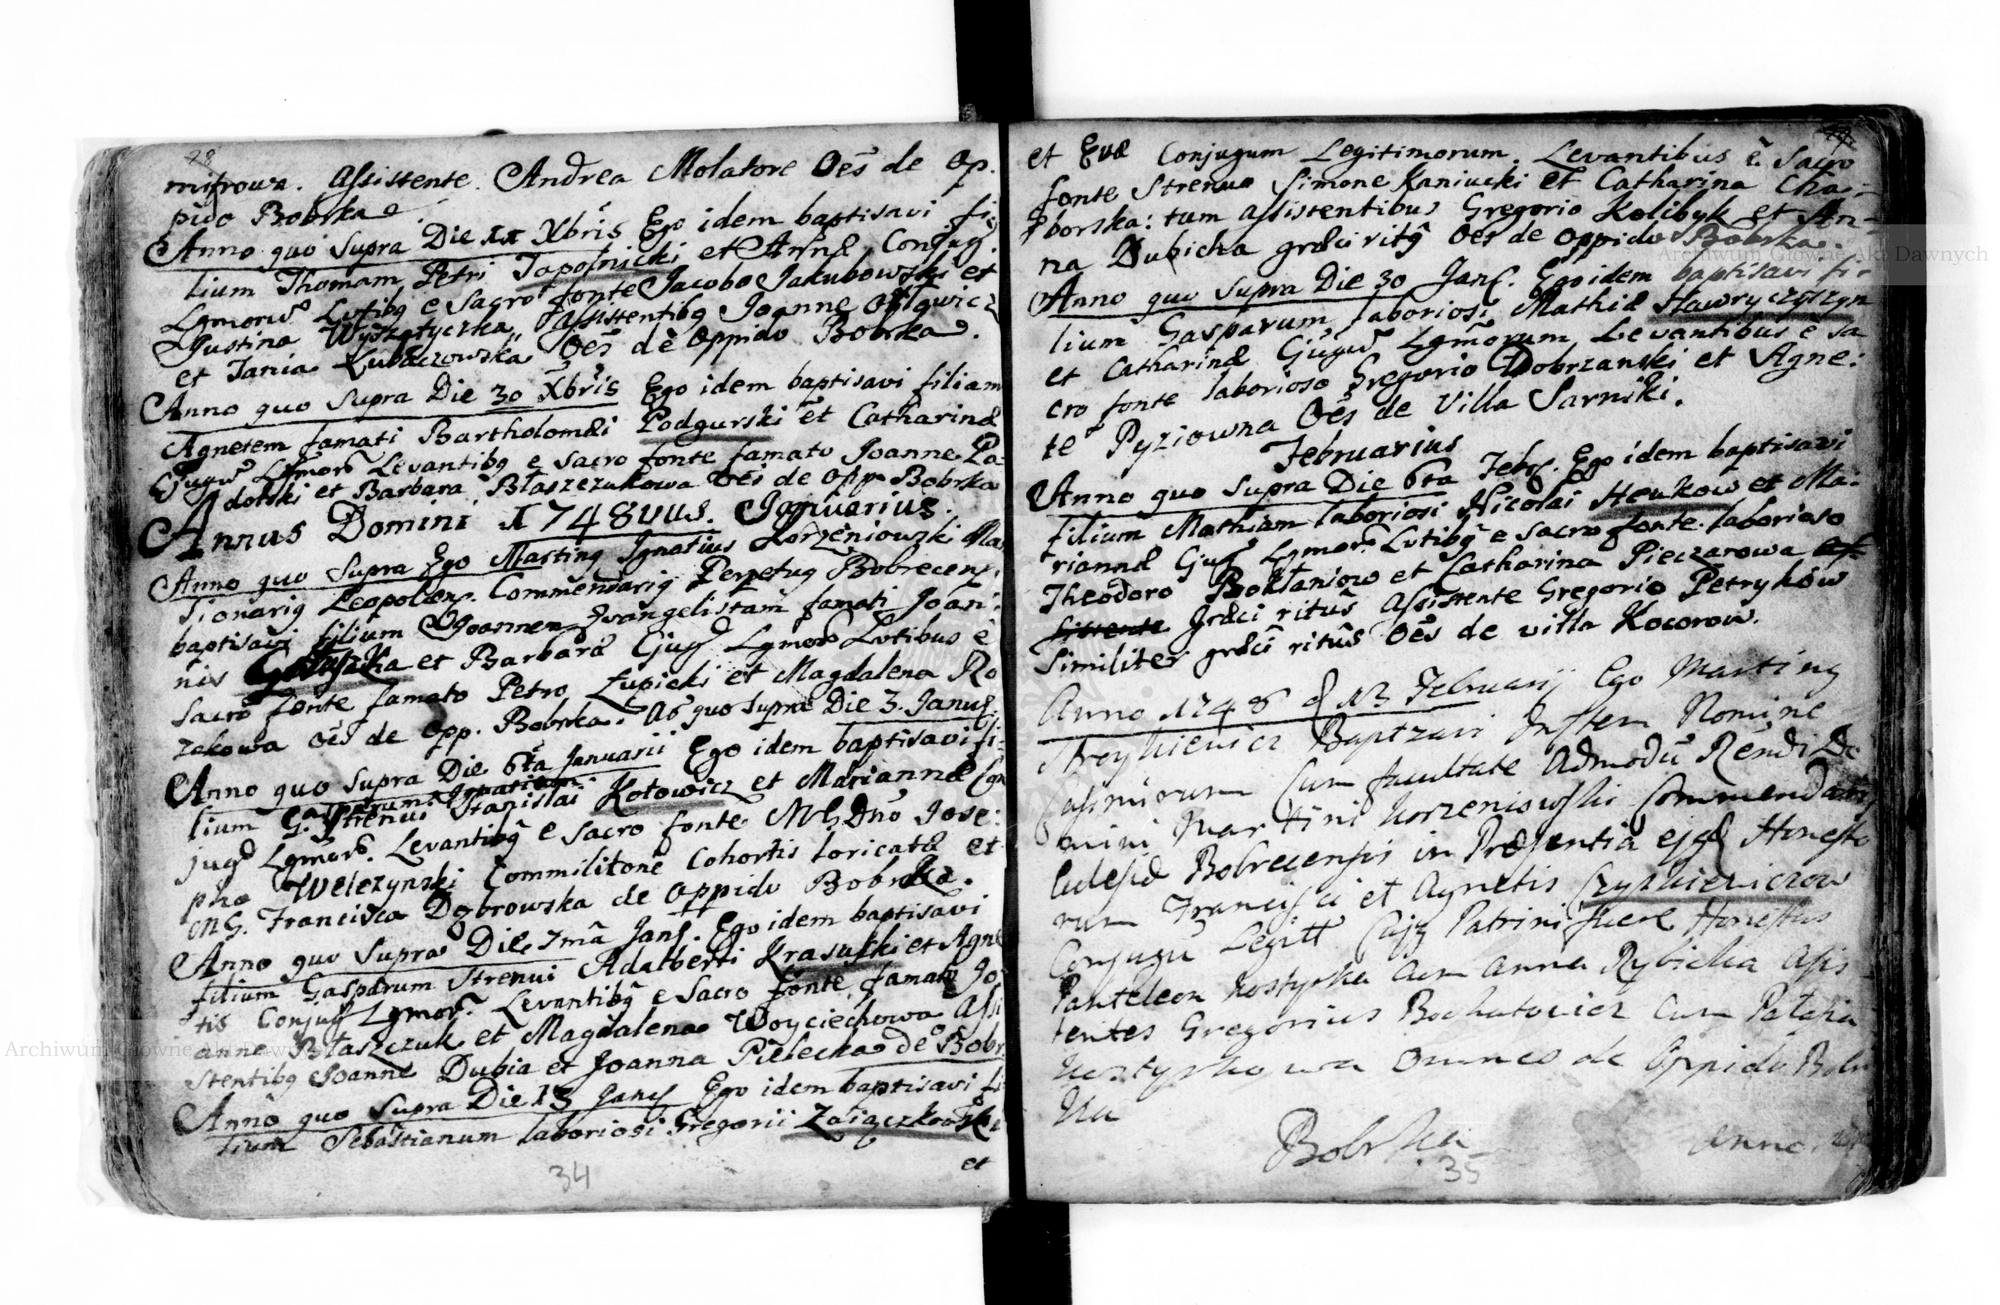 28
mitrowa. Assistente. Andrea Molatore Oēs de Op.
pido Bobrka
Anno quo Supra Die Xbris Ego idem baptisavi fi
lium Thomam Petri Tapotnicki et Annæ Conjug.
Lgmorū Lvtibq e Sacro fonte Jacobo Jakubowski et
Justina Wyszatyczka, Assistentibq Joanne
et Tania Lubaczowska Oēs de Oppido Bobrka.
Anno quo Supra Die 30 Xbris Ego idem baptisavi filiam
Agnetem famati Bartholomæi Podgurski et Catharinæ
Levantibq e sacro fonte famato Joanne Za
dolski et Barbara Błaszczukowa Oēs de Opp. Bobrka
Annus Domini 1748vus. Januarius.
Anno quo Supra Ego Martinq Ignatius Korzeniowski
Commendariq Perpetuq Bobrecens.
baptisavi filium Joannem Evangelistam famati Joan:
nis et Barbaræ Cjug Lgmorō Lvtibus è
Sacro fonte famato Petro Łupicki et Magdalena Ro
zakowa oēs de Opp. Bobrka. Aō quo supra Die 3. Janus.
Anno quo Supra Die 6ta Januarii Ego idem baptisavi fi:
lium Strenui Stanislai Kotowicz et Mariannæ Con
jugō Lgmorō. Levantibq e Sacro fonte MG Dnō Jose:
pho Welczynski Commilitone Cohortis loricatæ et
MG. Francisca Dąbrowska de Oppido Bobrka.
Anno quo Supra Die 7mā Jan. Ego idem baptisavi
filium Gasparum Strenui Adalberti Krasuski et Agne
tis Conjug Lgmor. Levantibq e Sacro fonte famato Jo
anne Błaszczuk et Magdalena Woyciechowa Assi
stentibq Joanne Dubia et Joanna Pielecka de Bobr
Anno quo Supra Die 13 Jany Ego idem baptisavi fi
lium Sebastianum laboriosi Gregorii Zaiączkowski
et
34
et Evæ Conjugum Legitimorum. Levantibus è Sacro
fonte Strenuo Simone Kaniucki et Catharina Cha:
borska: tum Assistentibus Gregorio Kolibyk et An=
na Dubicha græci ritq Oēs de Oppido Bobrka.
Anno quo Supra Die 30 Jan. Ego idem baptisavi fi-
lium Gasparum laboriosi Mathiæ Hawryczyszyn
et Catharinæ Lgmorum Levantibus è Sa
cro fonte laborioso Gregorio Dobrzanski et Agne:
te Pyziowna Oēs de Villa Sarniki.
Februarius
Anno quo Supra Die 6ta Febr. Ego idem baptisavi
filium Mathiam laboriosi Nicolai Heukow et Ma:
riannæ Cjug Lgmor. Lvtibq e Sacro fonte laborioso
Theodoro Bohlaniow et Catharina Pieczarowa
græci ritus Assistente Gregorio Petryków
Similiter græci ritûs Oēs de villa Kocorow.
Anno 1748 d 13 Februarij Ego Martinq
Baptzavi Inftem Nomine
Casimirum Cum facultate Admodū Rēndi Do
mini Martini Korzeniowski Commendarij
Eclesiæ Bobrecensis in Præsentia Honesto
rum Francisci et Agnetis
Conjugū Legitt Patrini fuere Honestus
Panteleon Kostyrka cum Anna Rybicka Asis
tentes Gregorius Bochatowicz Cum Patapia
Kostyrkowa omnes de Oppido Bobr
ka
Bobrka
Anno
35
Archiwum Główne Akt Dawnych
Archiwum Główne Akt Dawnych